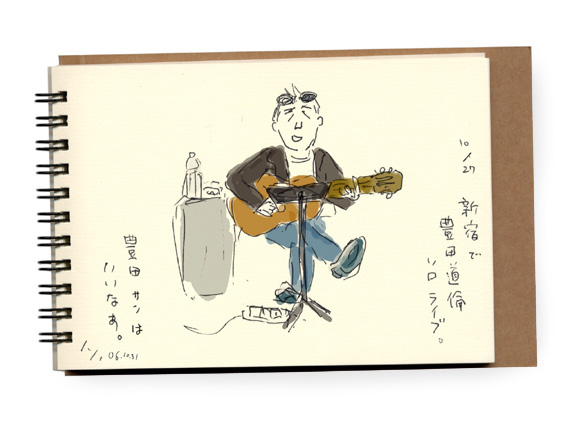 10/27
新宿で
豊田道倫
ソロライブ。
豊田サンは
いいなあ。
06.10.31